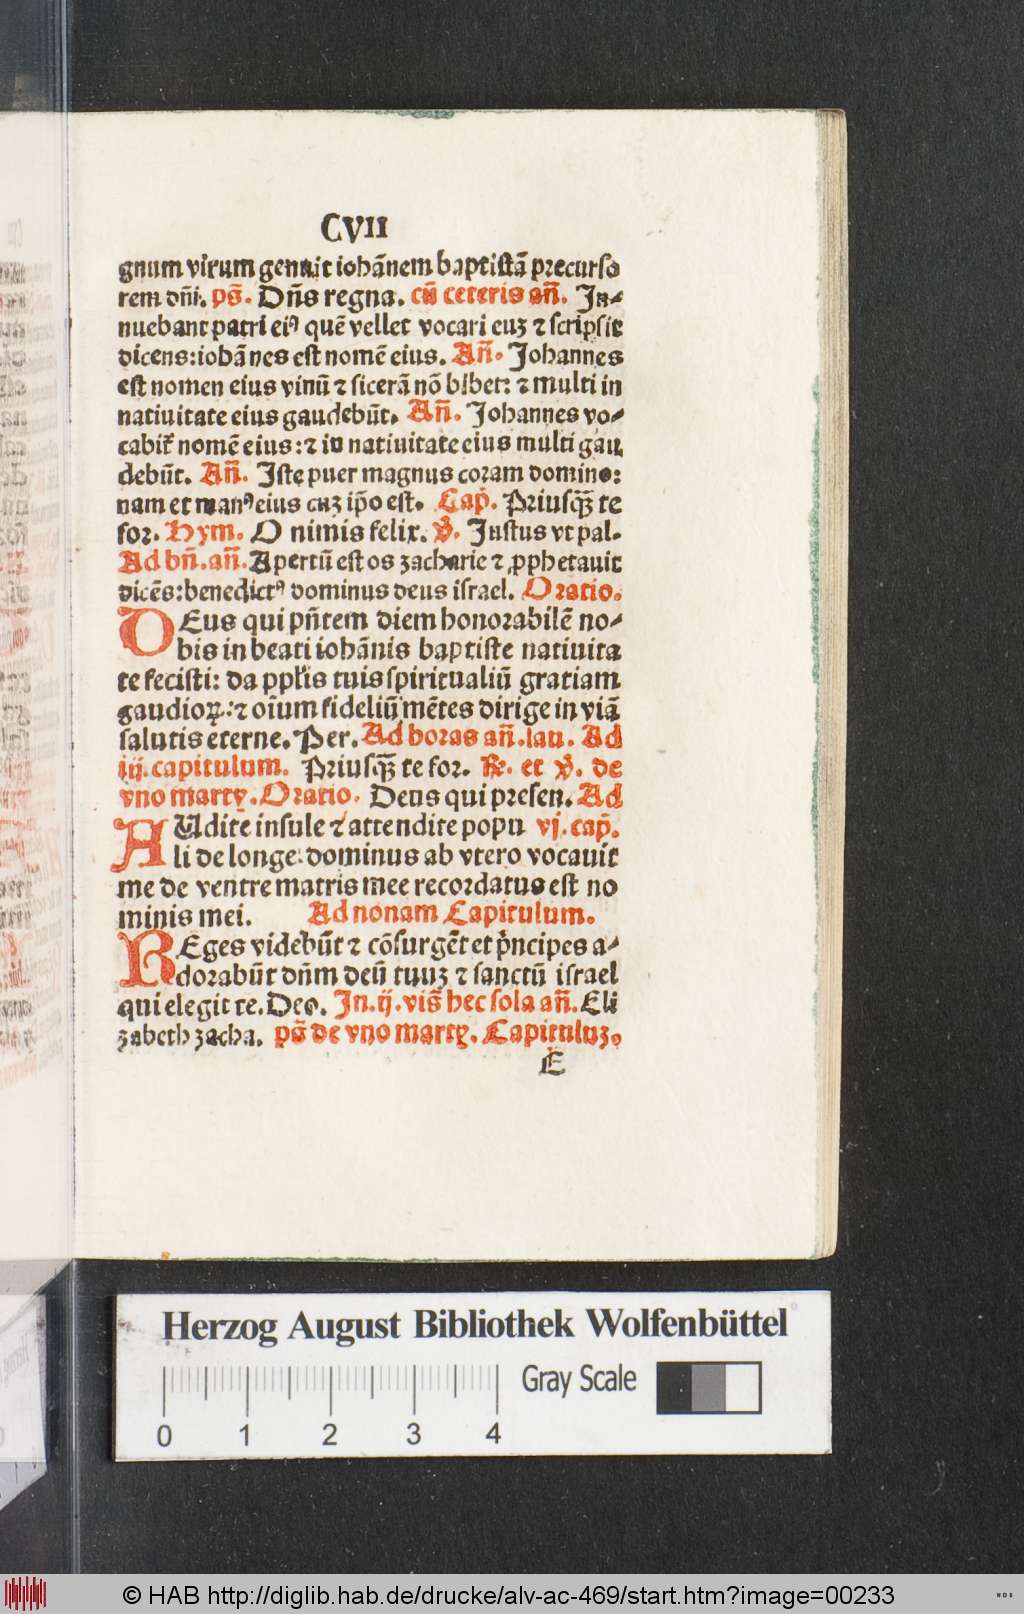 CVII
gnum virum genuit iohānem baptistā precurso
rem dñi. ps̄. Dñs regna. cū ceteris añ. In-
nuebant patri eiꝰ quē vellet vocari euȝ ⁊ scripsit
dicens: iohānes est nomē eius. Añ. Johannes
est nomen eius vinū ⁊ sicerā nō bibet: ⁊ multi in
natiuitate eius gaudebūt. Añ. Johannes vo-
cabit̃ nomē eius: ⁊ in natiuitate eius multi gau
debūt. Añ. Iste puer magnus coram domino:
nam et manꝰ eius cuȝ ip̄o est. Cap̄. Priusq̄ȝ te
for. Hym. O nimis felix. ℣. Justus vt pal.
Ad bñ. añ. Apertū est os zacharie ⁊ ꝓphetauit
dicēs: benedictꝰ dominus deus israel. Oratio.
DEus qui pñtem diem honorabilē no-
bis in beati iohānis baptiste natiuita
te fecisti: da ppl̄is tuis spiritualiū gratiam
gaudioꝝ: ⁊ oīum fideliū mētes dirige in viā
salutis eterne. Per. Ad horas añ. lau. Ad
iij. capitulum. Priusq̄ȝ te for. ℟. et ℣. de
vno martyꝝ. Oratio. Deus qui presen. Ad
AUdite insule ⁊ attendite popu vj. cap̄.
li de longe. dominus ab vtero vocauit
me de ventre matris mee recordatus est no
minis mei. Ad nonam Capitulum.
REges videbūt ⁊ cōsurgēt et p̄ncipes a-
dorabūt dñm deū tuuȝ ⁊ sanctū israel
qui elegit te. Deo. In. ij. vis̄ hec sola añ. Eli
zabeth zacha. ps̄ de vno martyꝝ. Capituluȝ.
E
Herzog August Bibliothek Wolfenbüttel
Gray Scale
0 1 2 3 4
© HAB http://diglib.hab.de/drucke/alv-ac-469/start.htm?image=00233